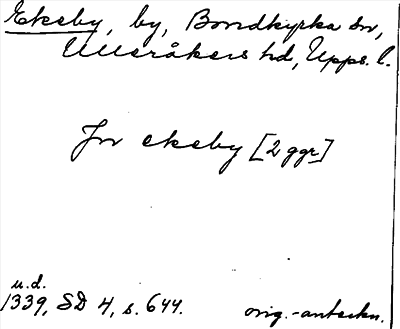 Ekeby, by, Bondkyrka sn,
Ulleråkers hd, Upps. l.
Jn ekeby [2 ggr]
u.d.
1339, SD 4, s. 644.
orig.-anteckn.